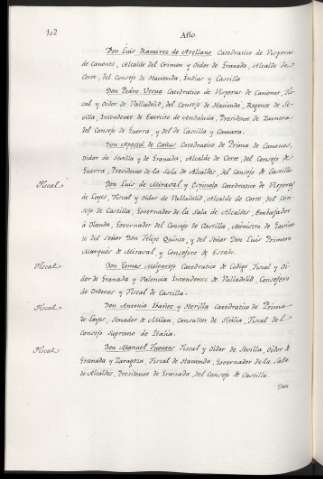 312
Año
Don Luis Ramirez de Arellano Catedratico de Visperas
de Canones, Alcalde del Crimen y Oidor de Granada, Alcalde de
Corte, del Consejo de Hacienda, Indias y Castilla
Don Pedro Ursua Catedratico de Visperas de Canones, Fis
cal y Oidor de Valladolid, del Consejo de Hacienda, Regente de Se
villa, Intendente de Exercito de Andalucia, Presidente de
del Consejo de Guerra, y del de Castilla y Camara.
Don Apostol de Cañas Catedratico de Prima de Canones,
Oidor de Sevilla y de Granada, Alcalde de Corte, del Consejo de
Guerra, Presidente de la Sala de Alcaldes, del Consejo de Castilla
Fiscal
Don Luis de Miraval y Espinola Catedratico de Visperas
de Leyes, Fiscal y Oidor de Valladolid, Alcalde de Corte del Con
sejo de Castilla, Governador de la Sala de Alcaldes, Embaxador
á Olanda, Governador del Consejo de Castilla, Ministro de
del Señor Don Felipe Quinto, y del Señor Don Luis Primero
Marques de Miraval, y Consejero de Estado.
Fiscal
Don Tomas Melgarejo Catedratico de Codigo Fiscal y Oi-
dor de Granada y Valencia Intendente de Valladolid, Consejero
de Ordenes y Fiscal de Castilla.
Fiscal
Don Antonio Ibañez y Catedratico de Prima
de Leyes, Senador de Milan, Consultor de Sicilia, Fiscal del
Consejo Supremo de Italia.
Fiscal
Don Manuel Fuentes Fiscal y Oidor de Sevilla, Oidor de
Granada y Zaragoza, Fiscal de Hacienda, Governador de la Sala
de Alcaldes, Presidente de Granada, del Consejo de Castilla
Don